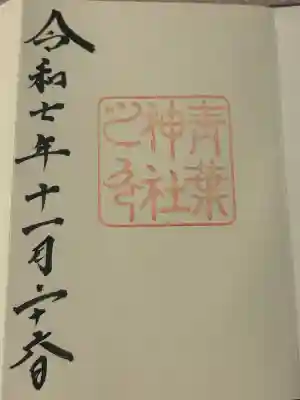 令和七年十一月二十六日
青葉
神社
之印